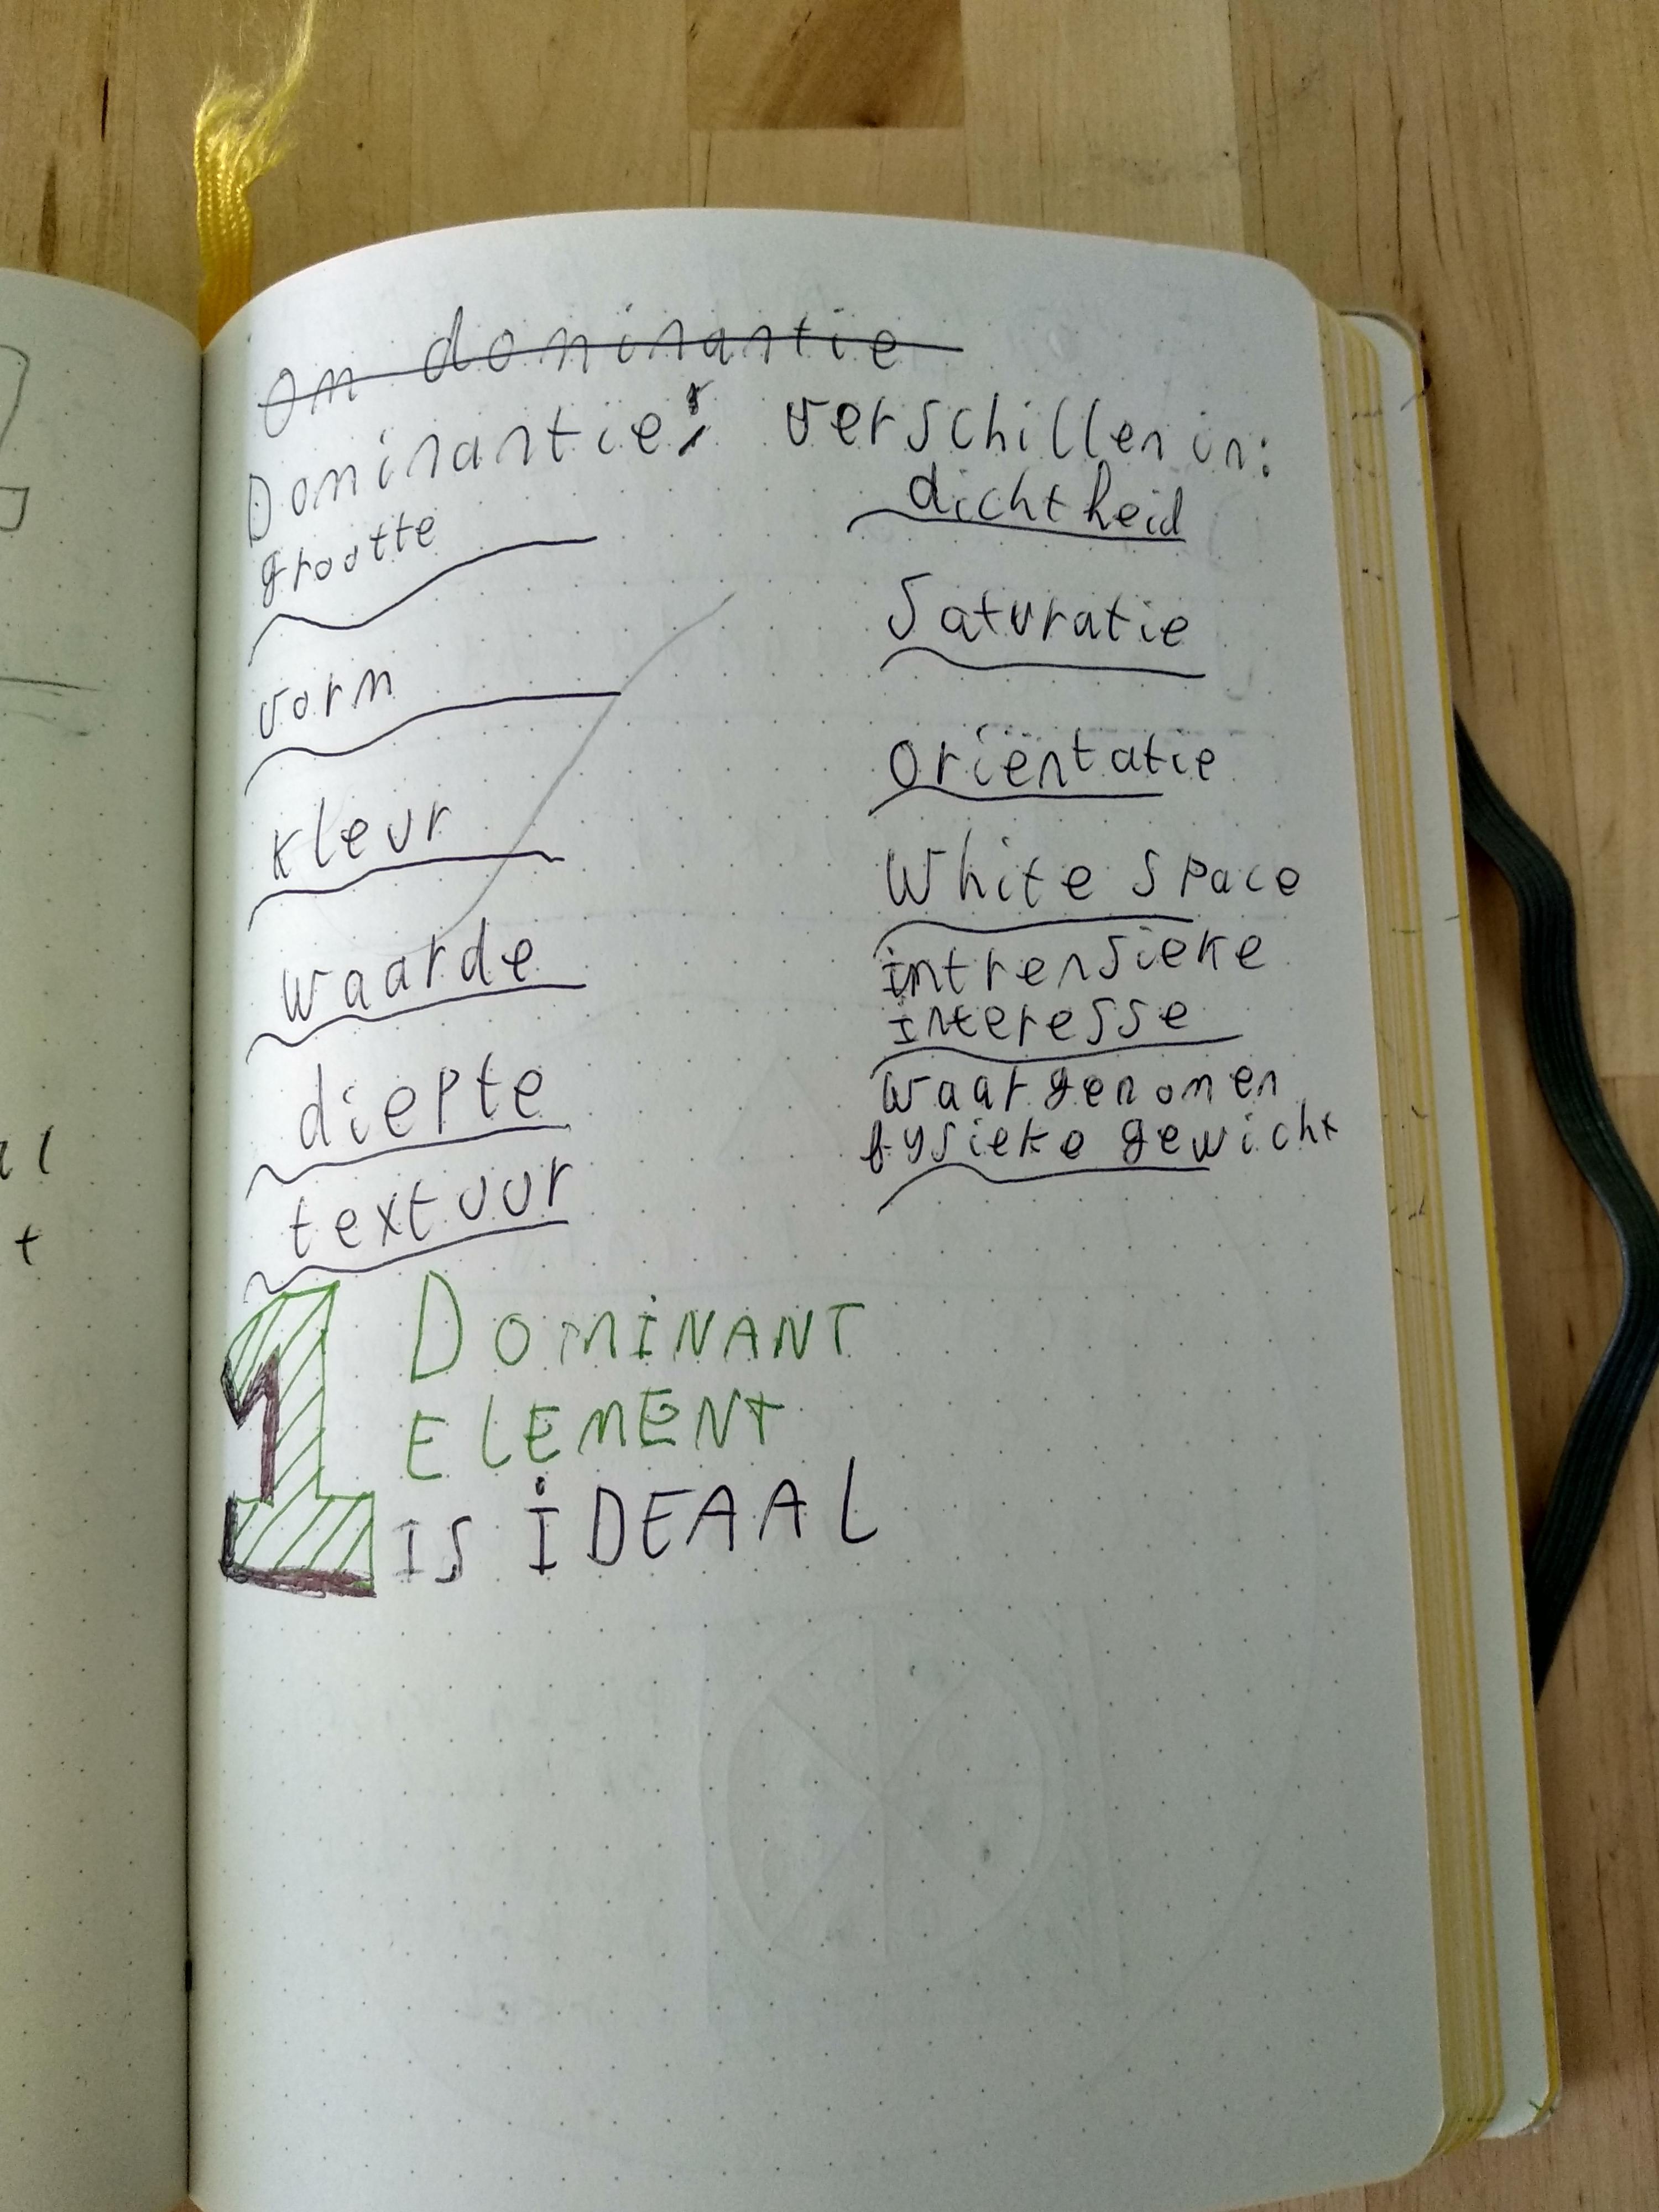 Om dominantie
Dominantie: verschillen in:
grootte
vorm
kleur
waarde
diepte
textuur
dichtheid
Saturatie
oriëntatie
White space
intrensieke
interesse
waargenomen
fysieke gewicht
1 DOMINANT
ELEMENT
IS IDEAAL